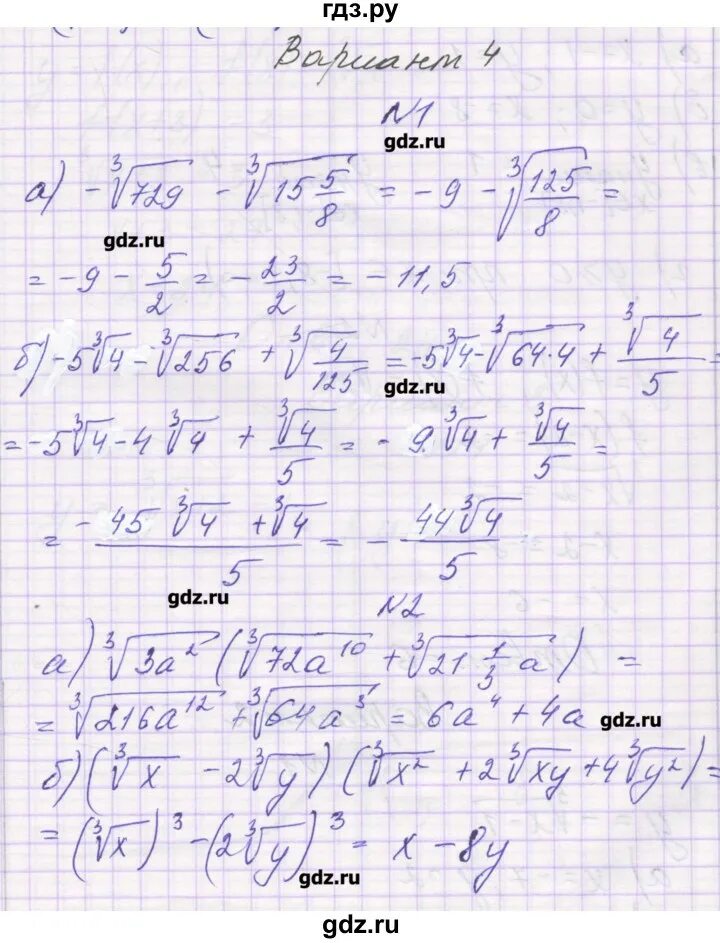 гдз.ру
Вариант 4
N1
gdz.ru
а) -∛729 - ∛(15 5/8) = -9 - ∛(125/8) =
gdz.ru
= -9 - 5/2 = -23/2 = -11,5
б) -5∛4 - ∛256 + ∛(4/125) = -5∛4 - ∛(64·4) + ∛4/5 =
gdz.ru
= -5∛4 - 4∛4 + ∛4/5 = -9∛4 + ∛4/5 =
= (-45∛4 + ∛4)/5 = -44∛4/5
gdz.ru
N2
а) ∛(3a²) (∛(72a¹⁰) + ∛(21 1/3 a)) =
= ∛(216a¹²) + ∛(64a³) = 6a⁴ + 4a
gdz.ru
б) (∛x - 2∛y) (∛x² + 2∛xy + 4∛y²) =
= (∛x)³ - (2∛y)³ = x - 8y
gdz.ru
gdz.ru